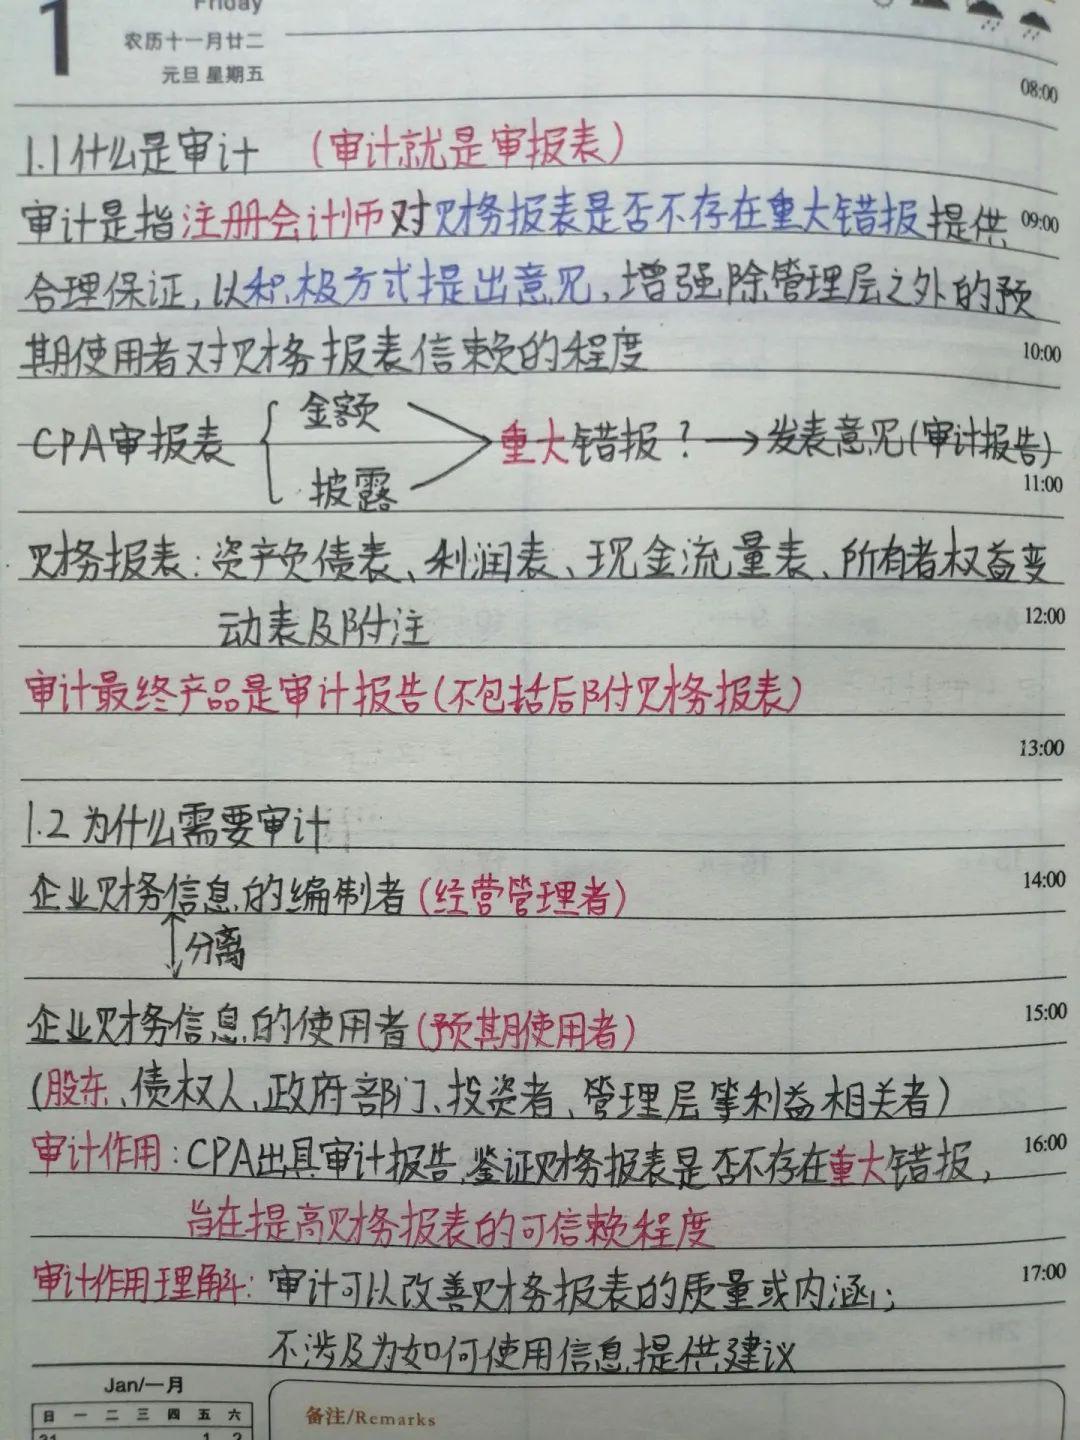 1
Friday
农历十一月廿二
元旦 星期五
08:00
1.1什么是审计 （审计就是审报表）
审计是指注册会计师对财务报表是否不存在重大错报提供
09:00
合理保证,以积极方式提出意见,增强除管理层之外的预
期使用者对财务报表信赖的程度
10:00
金额
CPA审报表 重大错报？→发表意见(审计报告)
披露
11:00
财务报表:资产负债表、利润表、现金流量表、所有者权益变
动表及附注
12:00
审计最终产品是审计报告(不包括后附财务报表)
13:00
1.2为什么需要审计
企业财务信息的编制者(经营管理者)
14:00
分离
企业财务信息的使用者(预期使用者)
15:00
(股东、债权人、政府部门、投资者、管理层等利益相关者)
审计作用:CPA出具审计报告,鉴证财务报表是否不存在重大错报,
16:00
旨在提高财务报表的可信赖程度
审计作用理解:审计可以改善财务报表的质量或内涵;
17:00
不涉及为如何使用信息提供建议
Jan/一月
日 一 二 三 四 五 六
31 1 2
备注/Remarks